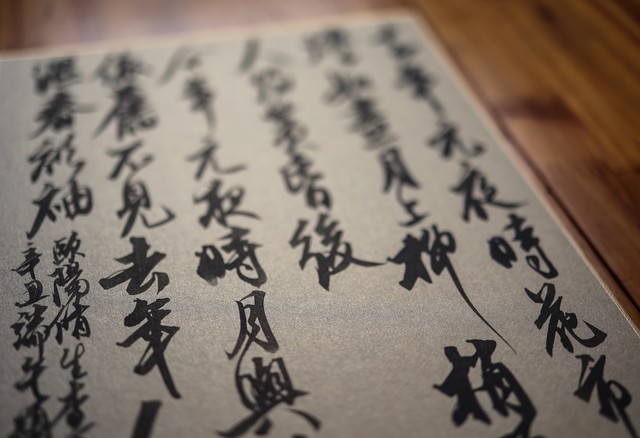 去年元夜時花市
燈如晝月上柳梢
人約黃昏後
今年元夜時月與
依舊不見去年
濕春衫袖
歐陽脩生查
辛丑端午